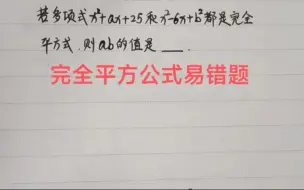 若多项式x²+ax+25和x²-6x+b²都是完全
平方式,则ab的值是___.
完全平方公式易错题